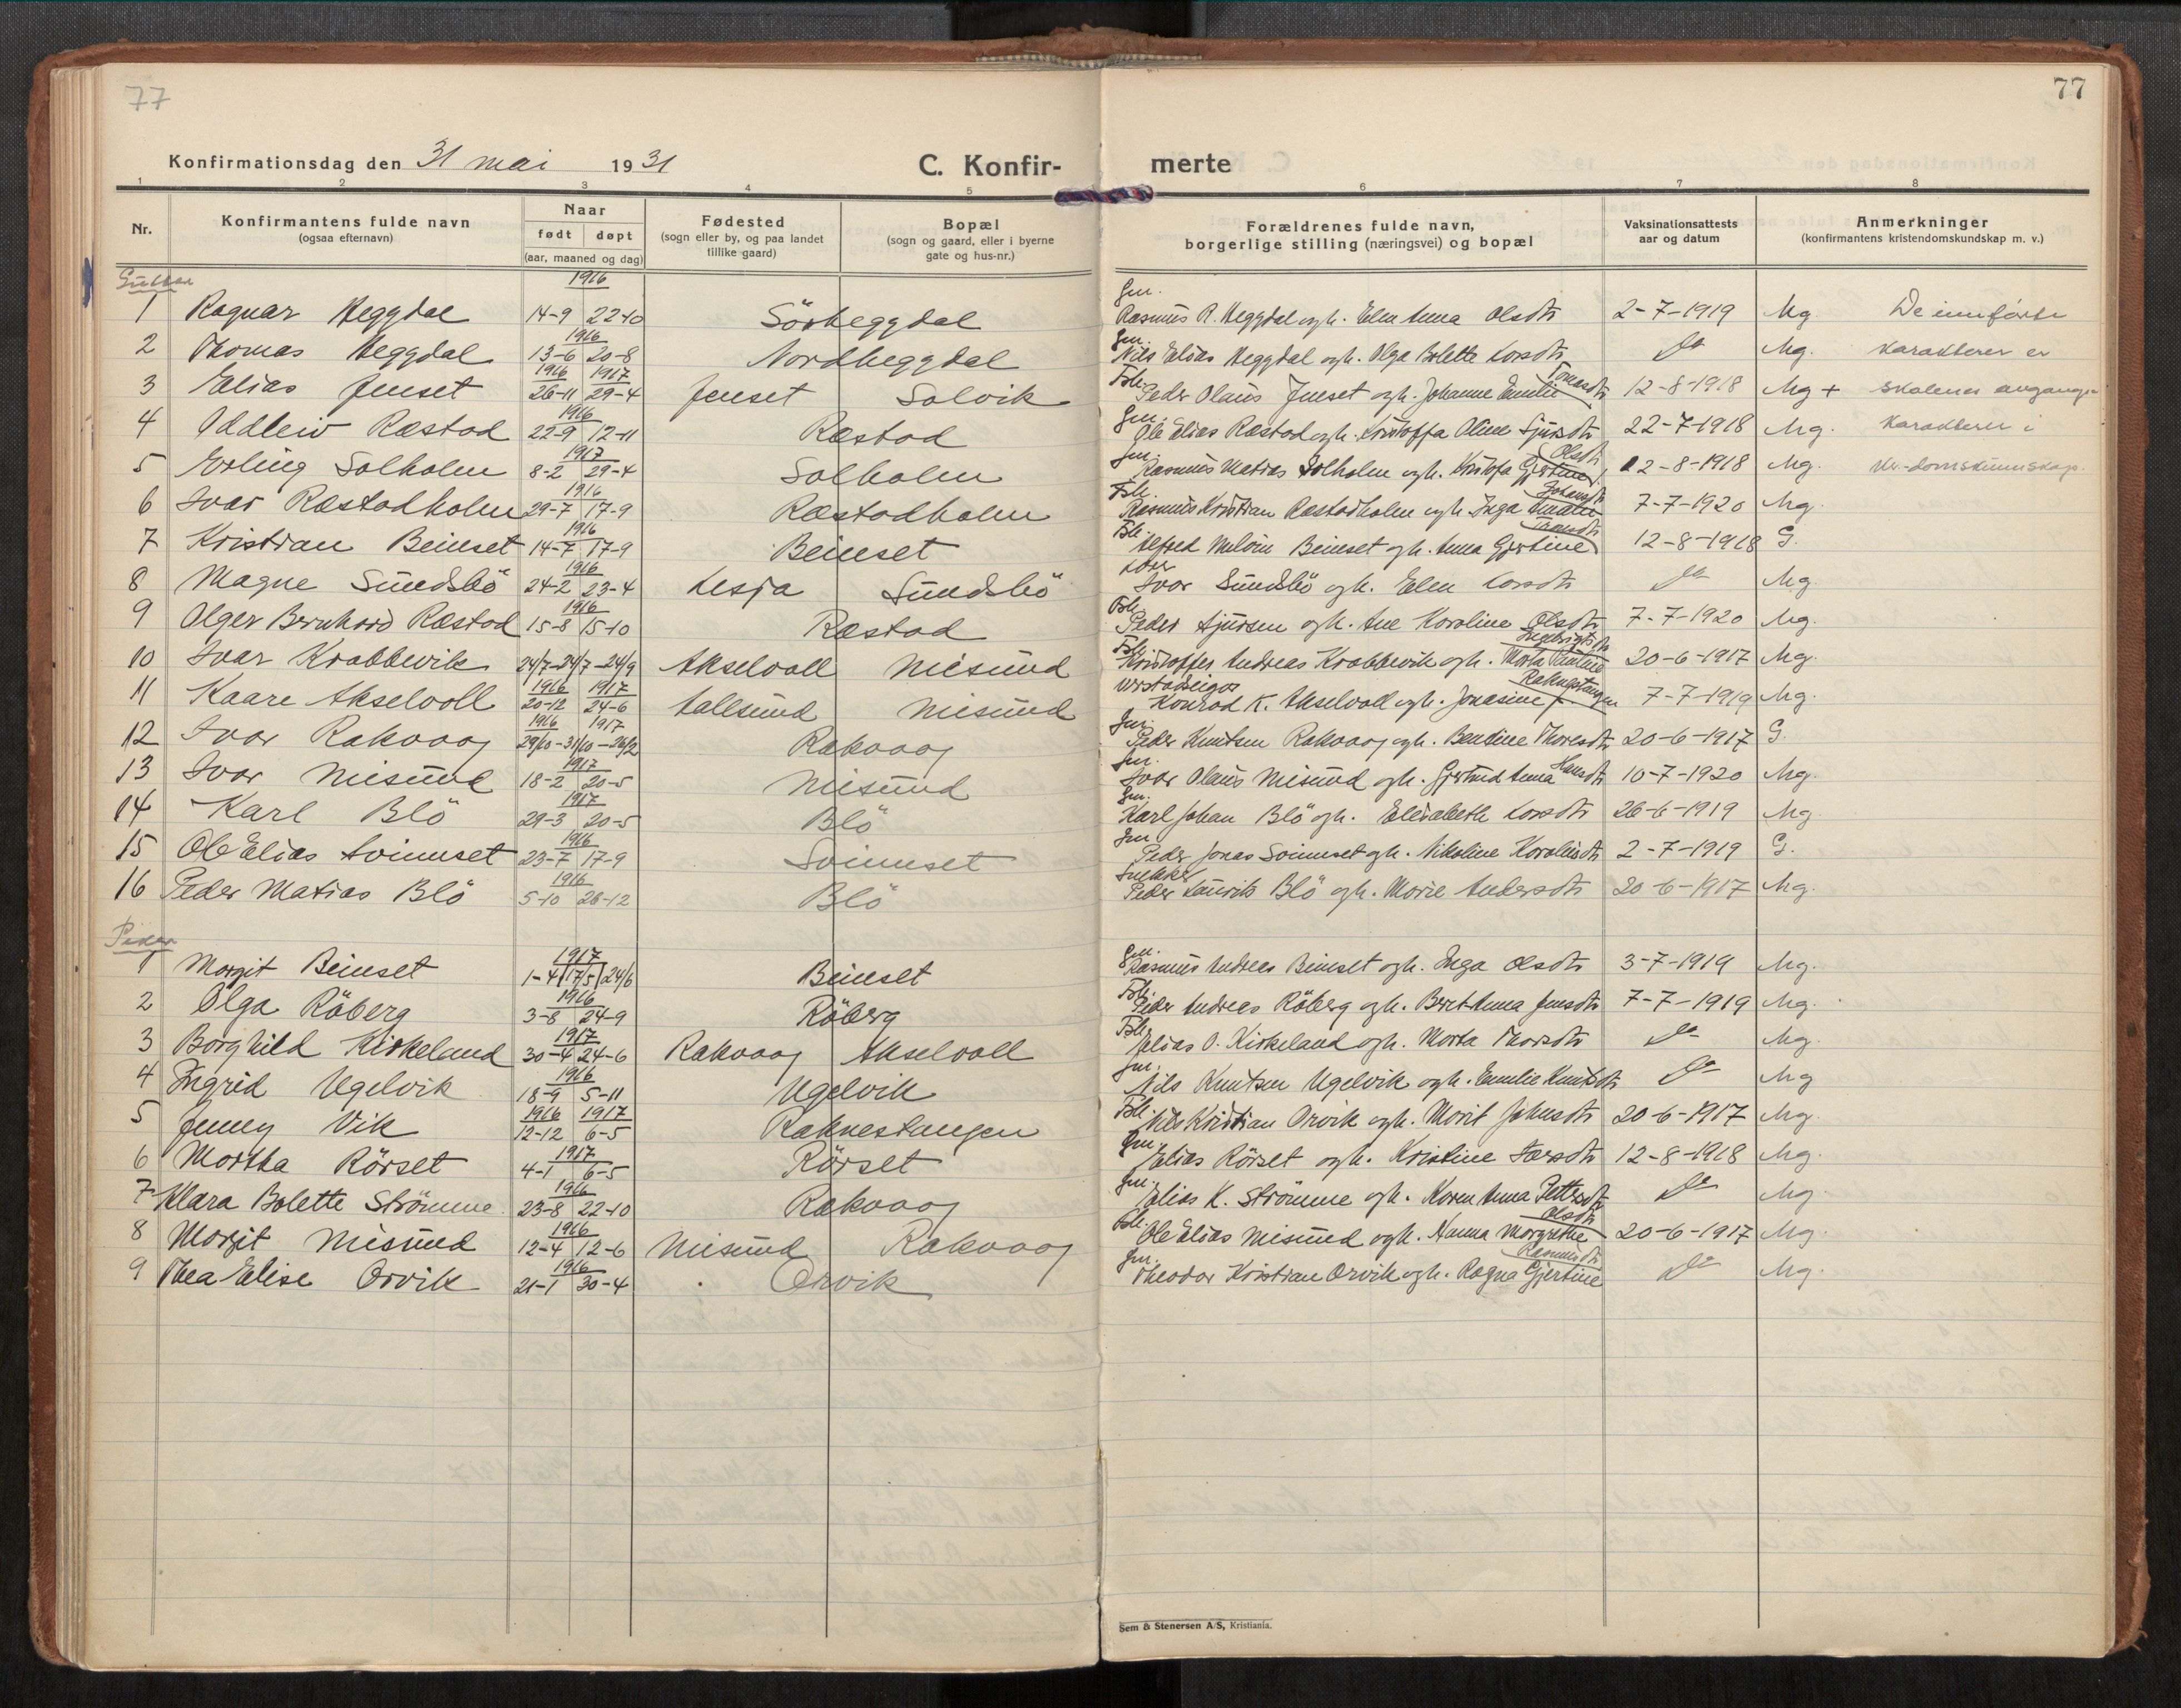 77
77
Konfirmationsdag den 31 mai 1931
C. Konfir-
merte
1 2 3 4 5 6 7 8
Nr. Konfirmantens fulde navn (ogsaa efternavn) Naar født døpt (aar, maaned og dag) Fødested (sogn eller by, og paa landet tillike gaard) Bopæl (sogn og gaard, eller i byerne gate og hus-nr.) Forældrenes fulde navn, borgerlige stilling (næringsvei) og bopæl Vaksinationsattests aar og datum Anmerkninger (konfirmantens kristendomskundskap m. v.)
Gutter
1 Ragnar Heggdal 1916 14-9 22-10 Sörheggdal Gm. Rasmus R. Heggdal og h. Elen Anna Olsdtr 2-7-1919 Mg De innførte
2 Thomas Heggdal 1916 13-6 20-8 Nordheggdal Gm. Nils Elias Heggdal og h. Olga Bolette Larsdtr Do Mg. karakterer er
3 Elias Jenset 1916 1917 26-11 29-4 Jenset Solvik Fsk. Peder Olaus Jenset og h. Johanne Emilie Tomasdtr 12-8-1918 Mg + skolenes avgangs-
4 Oddleiv Ræstad 1916 22-9 12-11 Ræstad Gm. Ole Elias Ræstad og h. Kristoffa Oline Sjursdtr 22-7-1918 Mg. karakterer i
5 Erling Solholm 1917 8-2 29-4 Solholm Gm. Rasmus Matias Solholm og h. Kristofa Gjertine Olsdtr 12-8-1918 Mg. kr.-domskunnskap.
6 Ivar Ræstadholm 1916 29-7 17-9 Ræstadholm Fsk. Rasmus Kristian Ræstadholm og h. Inga Amalie Johansdtr 7-7-1920 Mg.
7 Kristian Beinset 1916 14-7 17-9 Beinset Fsk. Alfred Melvin Beinset og h. Anna Gjertine 12-8-1918 G.
8 Magne Sundsbö 1916 24-2 23-4 Lesja Sundsbö Ivar Sundsbö og h. Elen Larsdtr Do Mg.
9 Olger Bernhard Ræstad 1916 15-8 15-10 Ræstad Fsk. Peder Sjursen og h. Ane Karoline Olsdtr 7-7-1920 Mg.
10 Ivar Krabbevik 24/7-24/7-24/9 Akselvoll Misund Fsk. Kristoffer Andreas Krabbevik og h. Marta Pauline Ingebrigtsdtr 20-6-1917 Mg.
11 Kaare Akselvoll 1916 1917 20-12 24-6 Sallsund Misund Verstadeigar Konrad K. Akselvoll og h. Jonasine Raknestangen 7-7-1919 Mg.
12 Ivar Rakvaag 1916 1917 29/10-31/10-26/2 Rakvaag Gm. Peder Knutsen Rakvaag og h. Bendine Thoresdtr 20-6-1917 G.
13 Ivar Misund 1917 18-2 20-5 Misund Gm. Ivar Olaus Misund og h. Gjertrud Anna Hansdtr 10-7-1920 Mg.
14 Karl Blö 1917 29-3 20-5 Blö Gm. Karl Johan Blö og h. Elisabeth Larsdtr 26-6-1919 Mg
15 Ole Elias Svinnset 1916 23-7 17-9 Svinnset Gm Peder Jonas Svinnset og h. Nikoline Karolusdtr 2-7-1919 G.
16 Peder Matias Blö 1916 5-10 26-12 Blö Snekker Peder Laurits Blö og h. Marie Andersdtr 20-6-1917 Mg.
Piker
1 Margit Beinset 1917 1-4 17/5 24/6 Beinset Gm. Rasmus Andreas Beinset og h. Inga Olsdtr 3-7-1919 Mg.
2 Olga Röberg 1916 3-8 24-9 Röberg Fsk. Peder Andreas Röberg og h. Beret Anna Jensdtr 7-7-1919 Mg.
3 Borghild Kirkeland 1917 30-4 24-6 Rakvaag Akselvoll Fsk. Elias O. Kirkeland og h. Marta Thorsdtr Do Mg.
4 Ingrid Ugelvik 1916 18-9 5-11 Ugelvik Gm. Nils Knutsen Ugelvik og h. Emilie Knutsdtr Do Mg
5 Jenny Vik 1916 1917 12-12 6-5 Raknestangen Fsk. Nils Kristian Orvik og h. Marit Johnsdtr 20-6-1917 Mg.
6 Martha Rörset 1917 4-1 6-5 Rörset Gm. Elias Rörset og h. Kristine Larsdtr 12-8-1918 Mg.
7 Klara Bolette Strömme 1916 23-8 22-10 Rakvaag Gm. Elias K. Strömme og h. Karen Anna Pettersdtr Do Mg.
8 Margit Misund 1916 12-4 12-6 Misund Rakvaag Fsk. Ole Elias Misund og h. Hanna Margrethe Olsdtr 20-6-1917 Mg.
9 Thea Elise Orvik 1916 21-1 30-4 Orvik Gm. Theodor Kristian Orvik og h. Ragna Gjertine Rasmusdtr Do Mg.
Sem & Stenersen A/S, Kristiania.